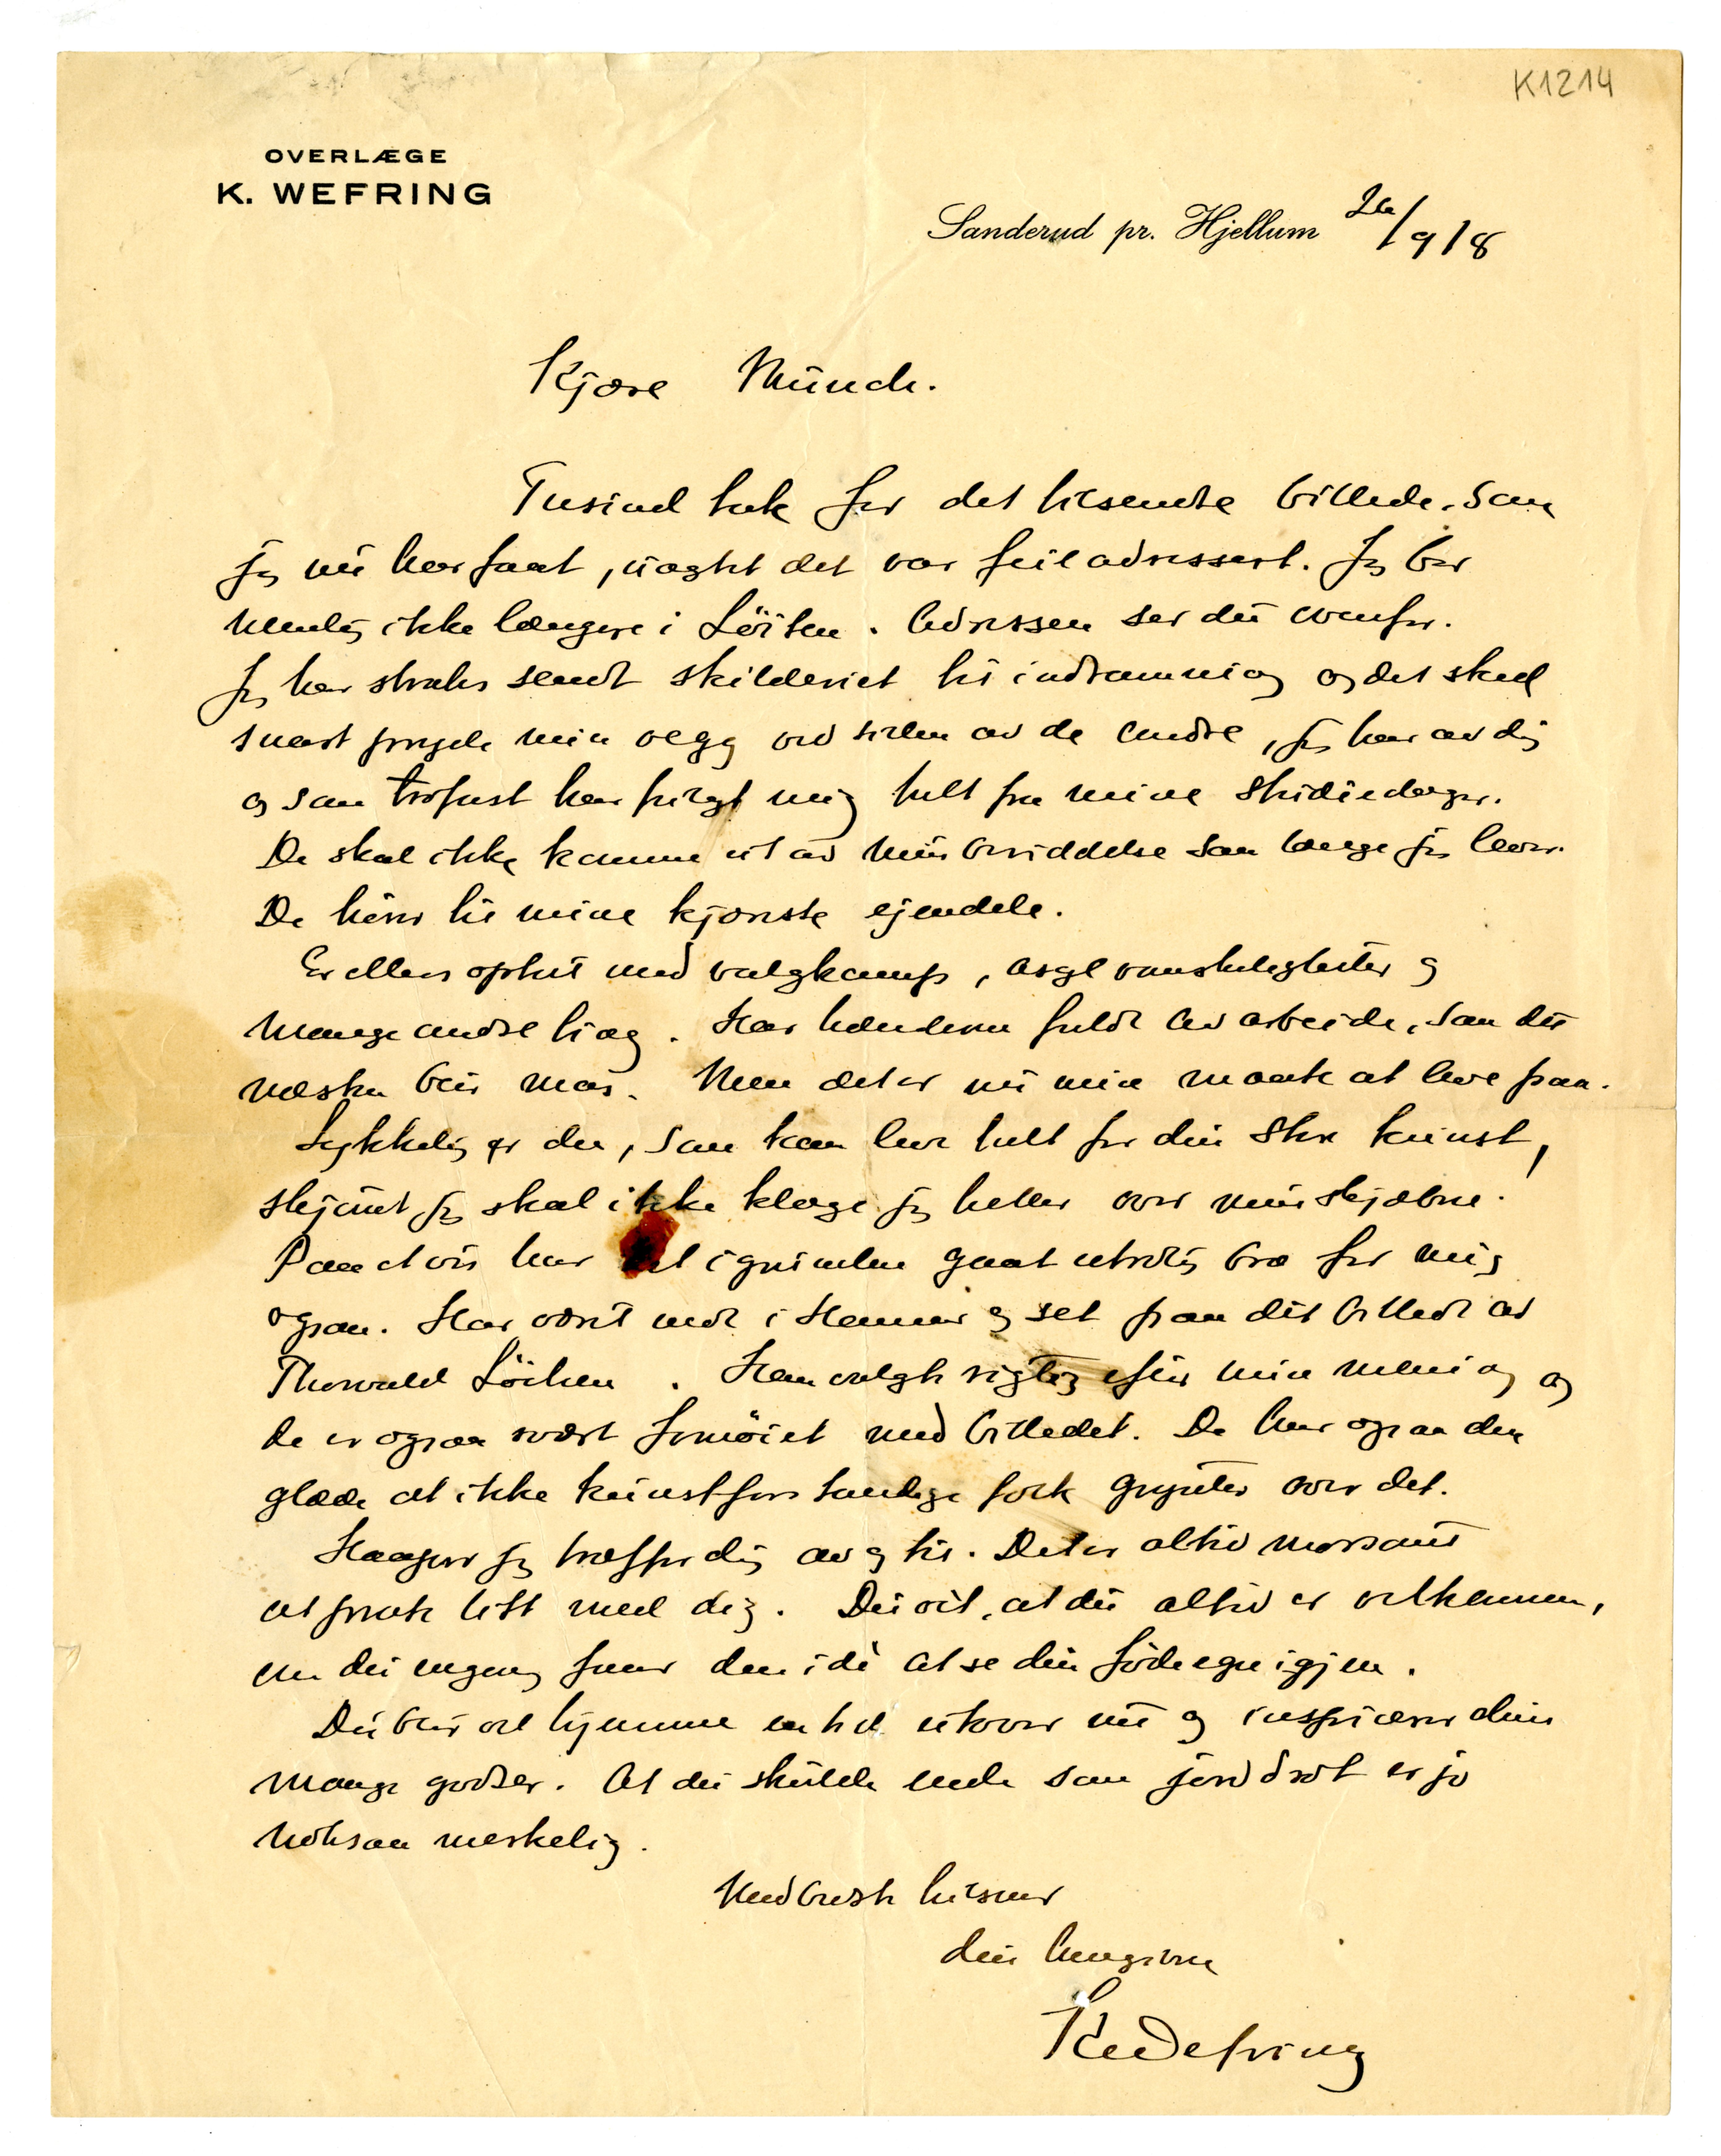 K1214
OVERLÆGE
K. WEFRING
Sanderud pr. Hjellum 26/9 18
Kjære Munch.
Tusind tak for det tilsendte billede, som
jeg nu har faat, uagtet det var feiladressert. Jeg bor
nemlig ikke længere i Löiten. Adressen ser du ovenfor.
Jeg har straks sendt skilderiet til indramning og det skal
snart pryde min vegg ved siden av de andre, jeg har av dig
og som trofast har fulgt mig helt fra mine studiedager.
De skal ikke komme ut av min besiddelse saa længe jeg lever.
De hører til mine kjæreste ejendele.
Er ellers optat med valgkamp, asyl vanskeligheter og
mange andre ting. Har hænderne fuldt av arbeide, saa det
næsten blir mas. Men det er nu min maate at leve paa.
Lykkelig er du, som kan leve helt for din store kunst,
skjønt jeg skal ikke klage jeg heller over min skjæbne.
Paa et vis har det i grunden gaat utrolig bra for mig
ogsaa. Har været nede i Hamar og set paa dit billede av
Thorvald Löchen. Han valgte rigtig efter min mening og
de er ogsaa svært fornöiet med billedet. De har ogsaa den
glæde at ikke kunstforstandige folk grynter over det.
Haaper jeg træffer dig av og til. Det er altid morsomt
at prate litt med dig. Du vet, at du altid er velkommen,
om du engang faar den idé at se din födeegn igjen.
Du blir vel hjemme en tid utover nu og inspicerer dine
mange godser. At du skulde ende som jorddrot er jo
noksaa merkelig.
Med bedste hilsener
din hengivne
KWefring